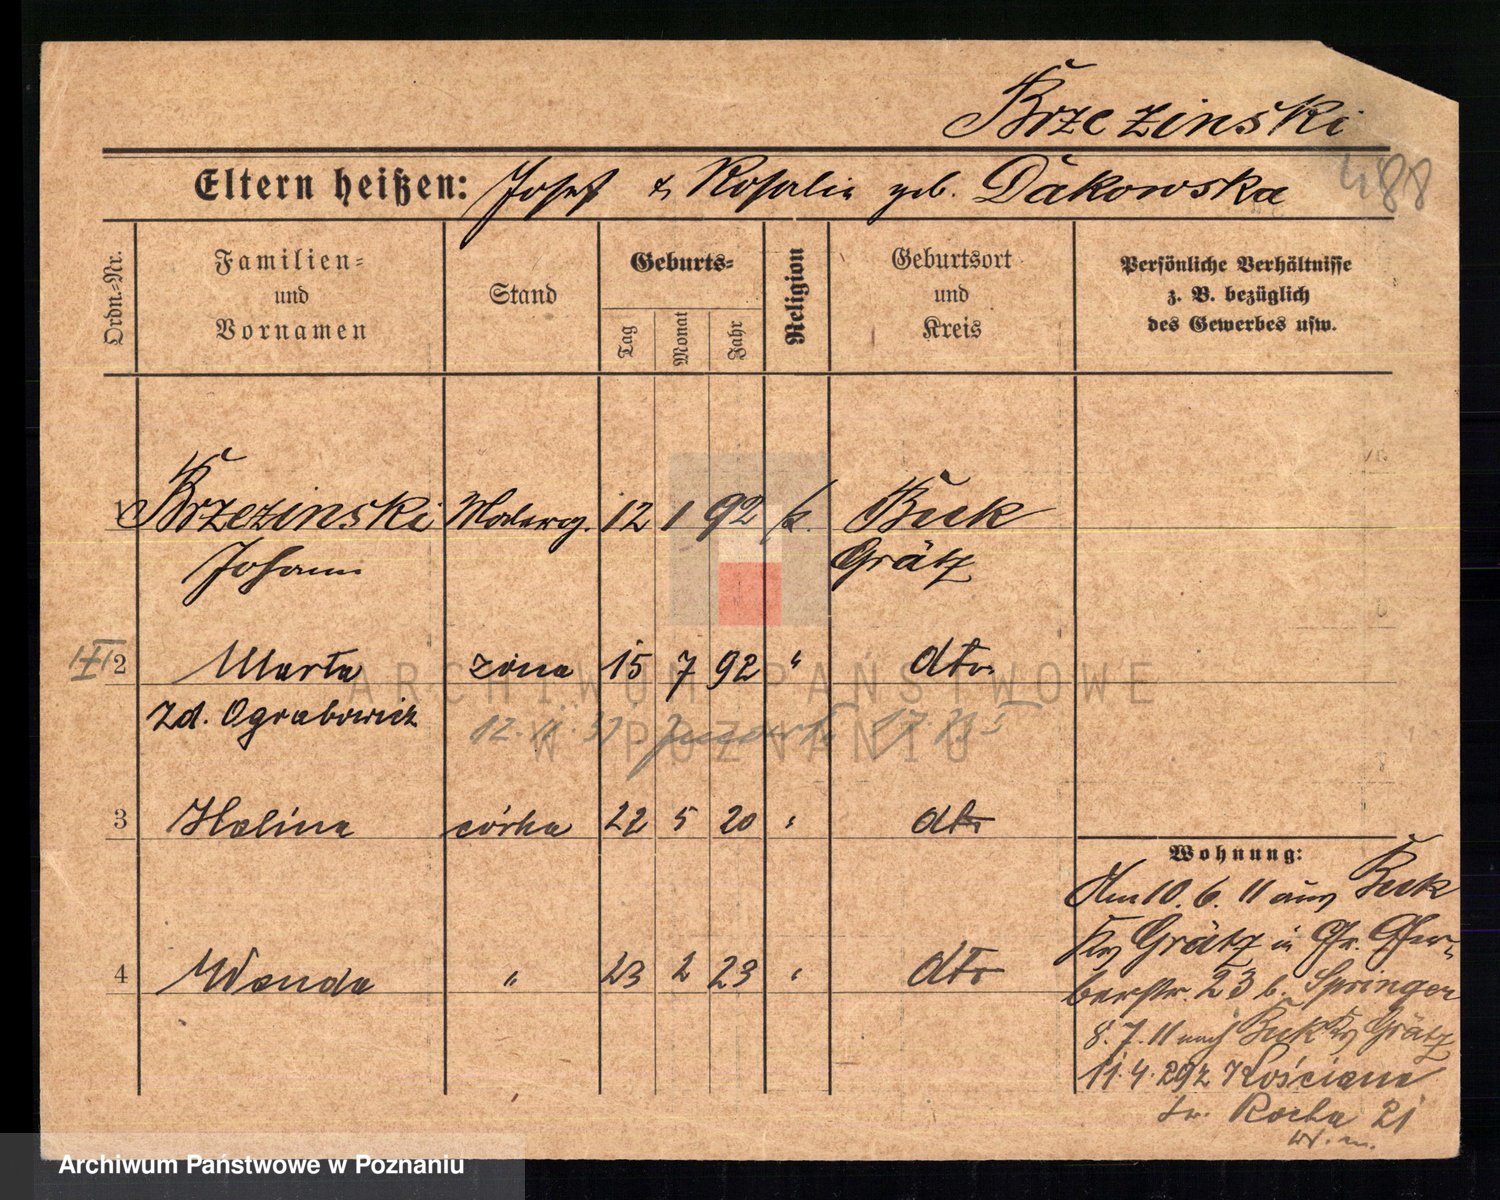 Brzezinski
Eltern heißen: Josef & Rosalie geb. Dakowska
488
Ordn.-Nr.
Familien-
und
Vornamen
Stand
Geburts-
Tag
Monat
Jahr
Religion
Geburtsort
und
Kreis
Persönliche Verhältnisse
z. B. bezüglich
des Gewerbes usw.
1 Brzezinski Malerg. 12 1 92 k. Buk
Johann Grätz
2 Marta żona 15 7 92 " dto
zd. Ograbowicz
12. 11. 37
3 Halina córka 22 5 20 " dto
4 Wanda " 23 2 23 " dto
Wohnung:
Am 10. 6. 11 aus Buk
Krs Grätz in Gr. Gerberstr. 23 b. Springer
8. 7. 11 nach Buk Krs Grätz
11. 4. 29 z Kościana
św. Rocha 21
W. m.
ARCHIWUM PAŃSTWOWE
W POZNANIU
Archiwum Państwowe w Poznaniu